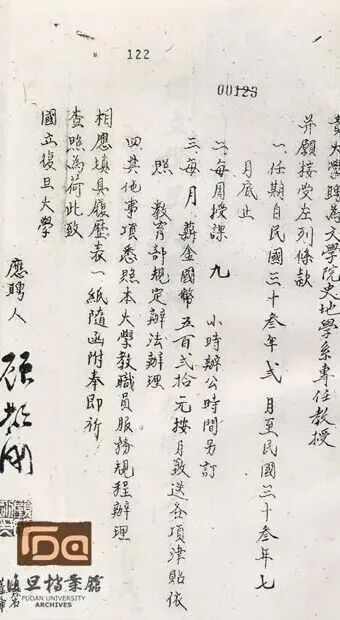 122
00123
貴大學聘為文學院史地學系專任教授
并願接受左列條款
一、任期自民國三十叁年貳月至民國三十叁年七
月底止
二、每周授課九小時辦公時間另訂
三、每月薪金國幣五百貳拾元按月致送各項津貼依
照教育部規定辦法辦理
四、其他事項悉照本大學教職員服務規程辦理
相應填具履歷表一紙隨函附奉即祈
查照為荷此致
國立復旦大學
應聘人
復旦档案馆
FUDAN UNIVERSITY
ARCHIVES